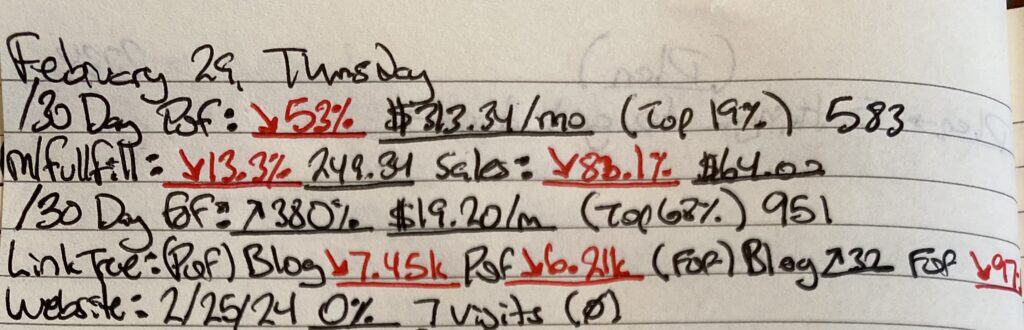 February 29, Thursday
/30 Day Pgf: ↘53% $313.34/mo (Top 19%) 583
m/fullfill: ↘13.3% 249.34 Sales: ↘83.1% $64.02
/30 Day Gf: ↗380% $19.20/m (Top 68%) 951
LinkTree: (Pgf) Blog ↘7.45k Pgf ↘6.21k (FOP) Blog ↗32 FOP ↘97
Website: 2/25/24 0% 7 visits (Ø)